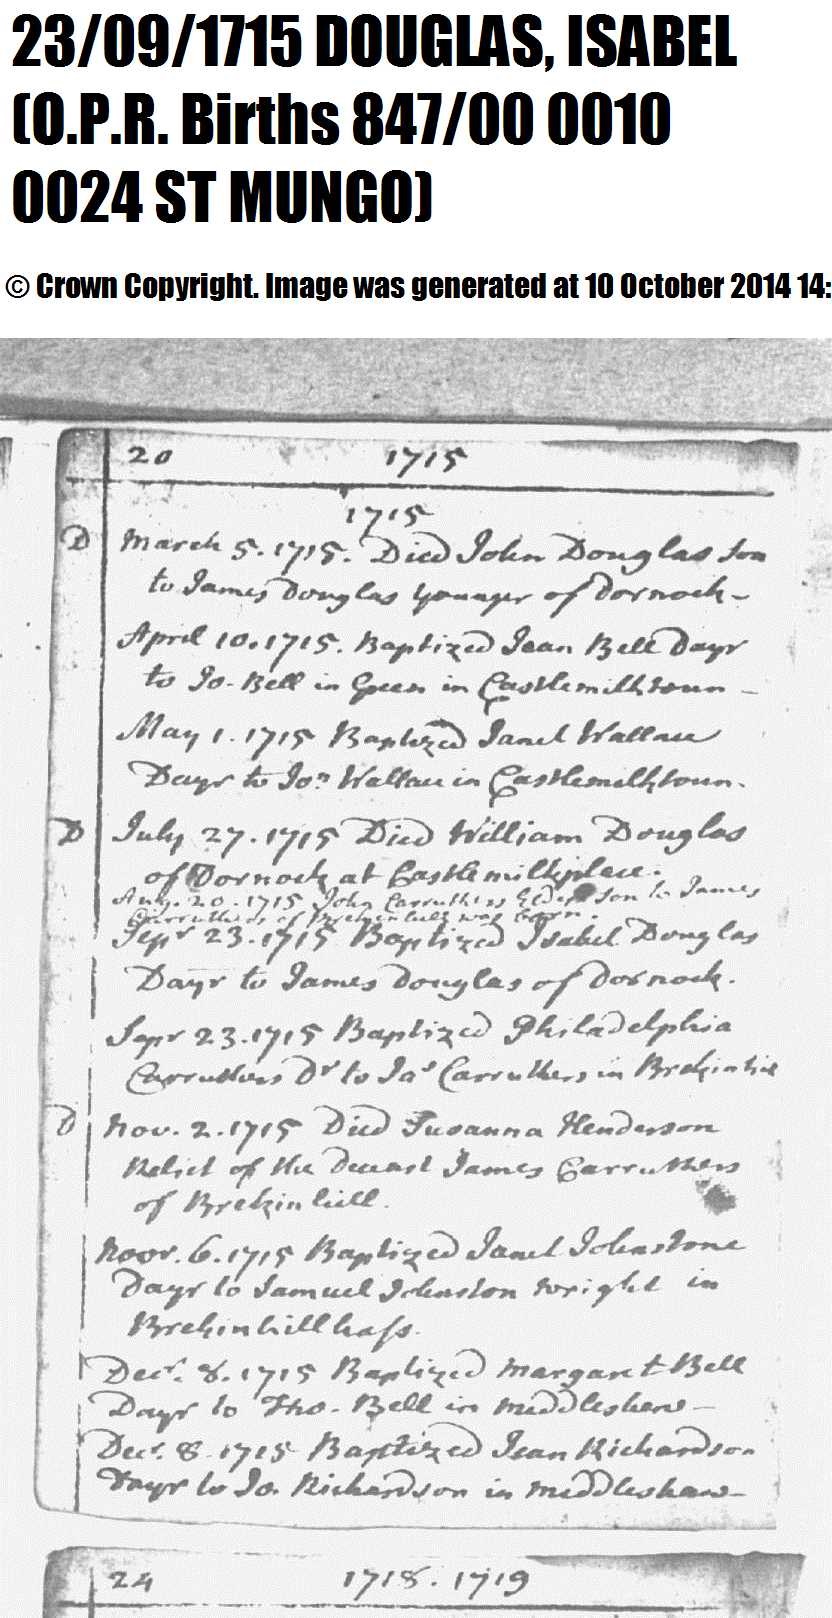 23/09/1715 DOUGLAS, ISABEL
(O.P.R. Births 847/00 0010
0024 ST MUNGO)
© Crown Copyright. Image was generated at 10 October 2014 14:
20 1715
1715
D March 5. 1715. Died John Douglas son
to James Douglas younger of Dornock -
April 10. 1715. Baptized Jean Bell Dayr
to Jo. Bell in Green in Castlemilktoun -
May 1. 1715 Baptized Janet Wallace
Dayr to Jon Wallace in Castlemilktoun.
D July 27. 1715 Died William Douglas
of Dornock at Castlemilkplace.
Aug. 20. 1715 John Carruthers Eldest son to James
Carruthers of Brekinhill was born.
Sepr 23. 1715 Baptized Isabel Douglas
Dayr to James Douglas of Dornock.
Sepr 23. 1715 Baptized Philadelphia
Carruthers Dr to Jas Carruthers in Brekinhill
D Nov. 2. 1715 Died Susanna Henderson
Relict of the Deceast James Carruthers
of Brekinhill.
Novr. 6. 1715 Baptized Janet Johnstone
Dayr to Samuel Johnston wright in
Brekinhillhass.
Decr. 8. 1715 Baptized Margaret Bell
Dayr to Tho. Bell in Middleshaw -
Decr. 8 1715 Baptized Jean Richardson
Dayr to Jo. Richardson in Middleshaw -
24 1718. 1719